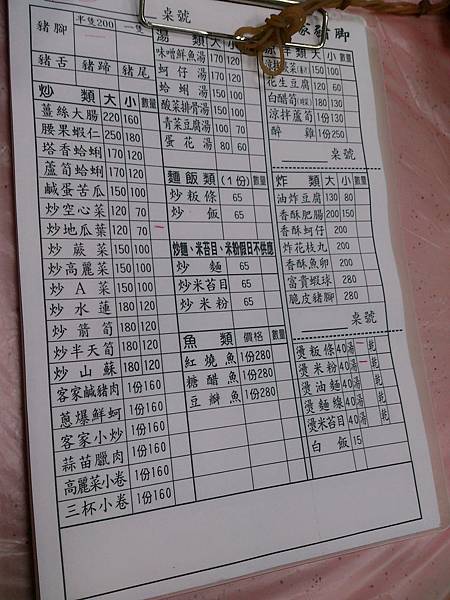 桌號
豬腳
豬腳 半隻200 一隻
豬舌 豬蹄 豬尾
炒類 大 小 數量
薑絲大腸 220 160
腰果蝦仁 250 180
塔香蛤蜊 170 120
蘆筍蛤蜊 170 120
鹹蛋苦瓜 150 100
炒空心菜 120 70
炒地瓜葉 120 70
炒蕨菜 150 100
炒高麗菜 150 100
炒A菜 150 100
炒水蓮 180 120
炒箭筍 180 120
炒半天筍 180 120
炒山蘇 180 120
客家鹹豬肉 1份160
蔥爆鮮蚵 1份160
客家小炒 1份160
蒜苗臘肉 1份160
高麗菜小卷 1份160
三杯小卷 1份160
湯類 大 小 數量
味噌鮮魚湯 170 120
蚵仔湯 170 120
蛤蜊湯 150 100
酸菜排骨湯 150 100
青菜豆腐湯 120 70
蛋花湯 80 60
麵飯類(1份) 數量
炒粄條 65
炒飯 65
炒麵、米苔目、米粉假日不供應
炒麵 65
炒米苔目 65
炒米粉 65
魚類 價格 數量
紅燒魚 1份280
糖醋魚 1份280
豆瓣魚 1份280
大 小 數量
150 100
花生豆腐 100 50
白醋筍 180 130
涼拌蘆筍 150 100
醉雞 1份250
桌號
炸類 大 小 數量
油炸豆腐 130 80
香酥肥腸 200 150
香酥蚵仔 200
炸花枝丸 200
香酥魚卵 200
富貴蝦球 280
脆皮豬腳 280
桌號
燙粄條 40 湯 乾
燙米粉 40 湯 乾
燙油麵 40 湯 乾
燙麵線 40 湯 乾
燙米苔目 40 湯 乾
白飯 15